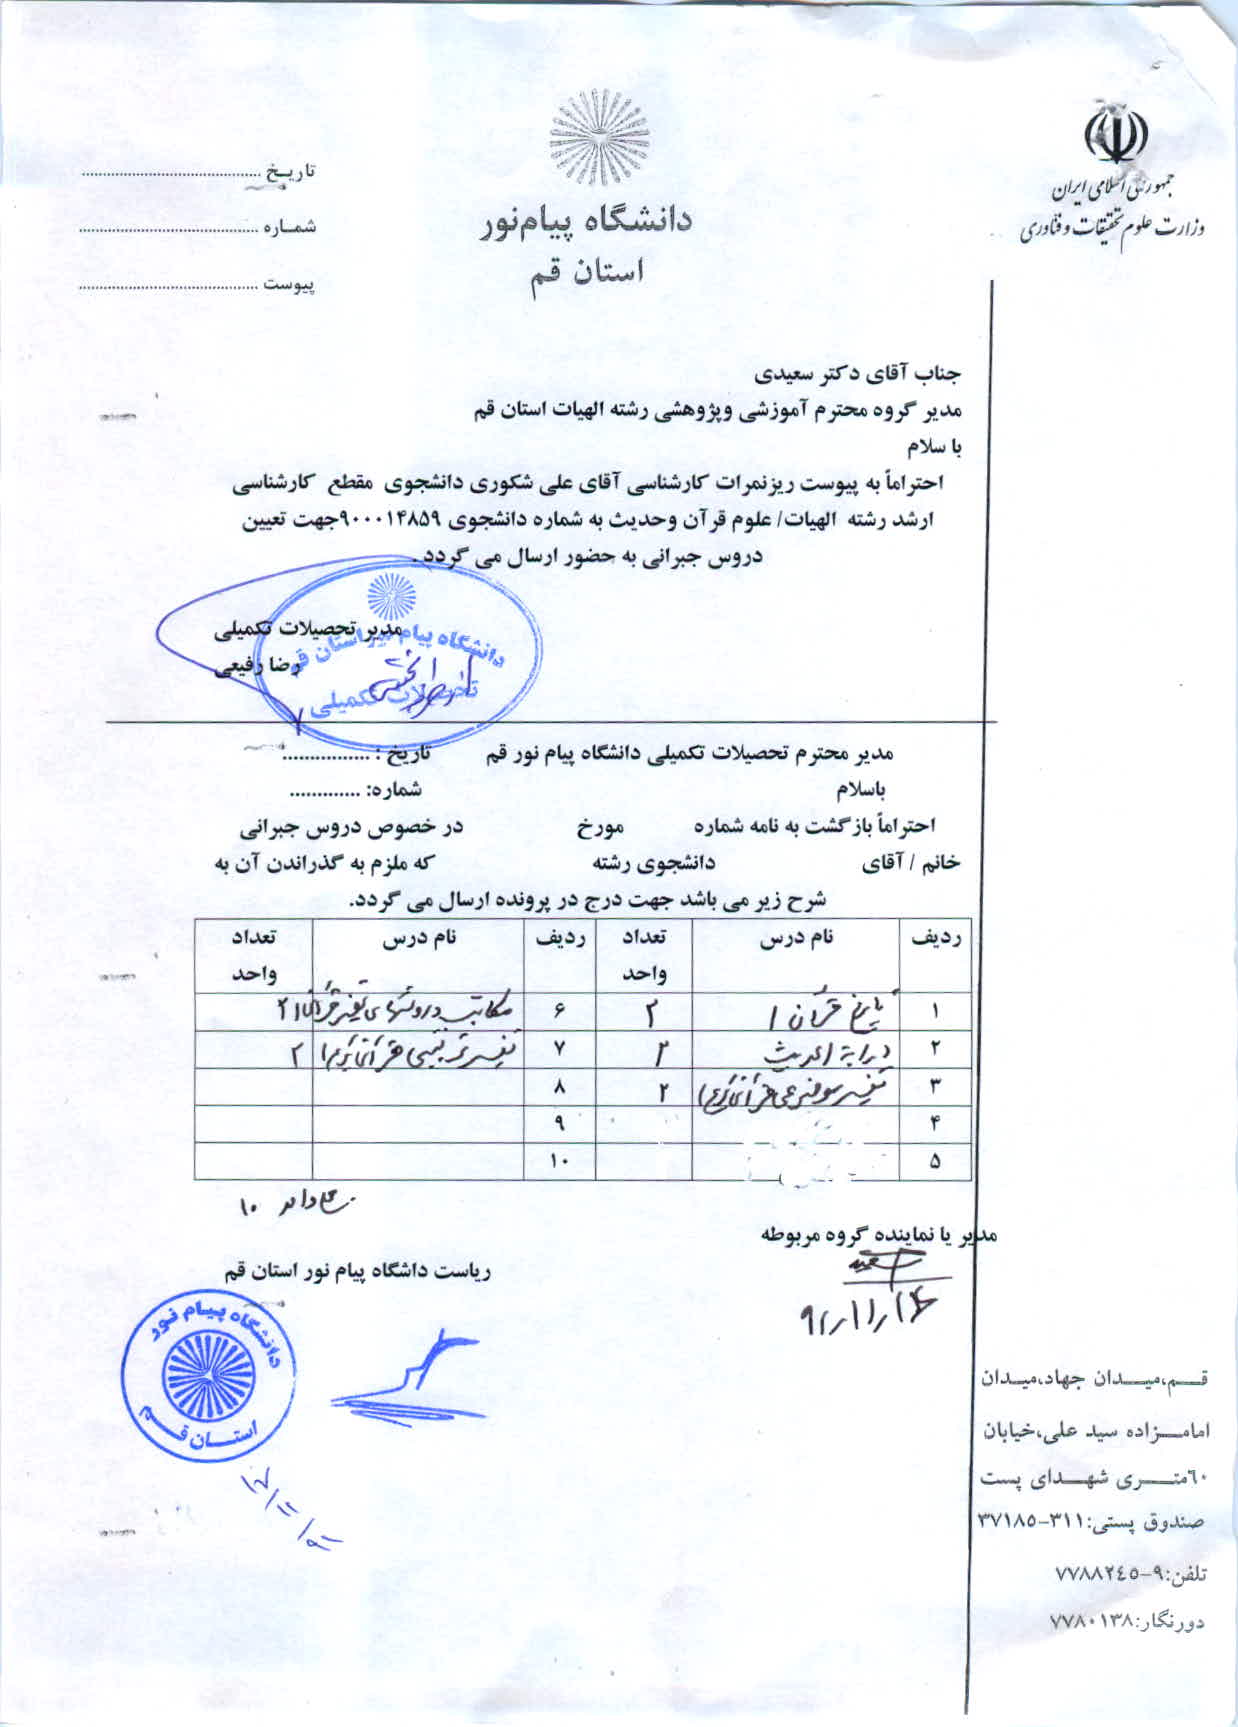 جمهوری اسلامی ایران
وزارت علوم تحقیقات و فناوری
دانشگاه پیام‌نور
استان قم
تاریـخ ............................................
شمـاره ............................................
پیوست ............................................
جناب آقای دکتر سعیدی
مدیر گروه محترم آموزشی وپژوهشی رشته الهیات استان قم
با سلام
احتراماً به پیوست ریزنمرات کارشناسی آقای علی شکوری دانشجوی مقطع کارشناسی
ارشد رشته الهیات/ علوم قرآن وحدیث به شماره دانشجوی ۹۰۰۰۱۴۸۵۹جهت تعیین
دروس جبرانی به حضور ارسال می گردد.
مدیر تحصیلات تکمیلی
رضا رفیعی
دانشگاه پیام نور استان قم
تحصیلات تکمیلی
مدیر محترم تحصیلات تکمیلی دانشگاه پیام نور قم تاریخ : ................
باسلام شماره: .............
احتراماً بازگشت به نامه شماره مورخ در خصوص دروس جبرانی
خانم / آقای دانشجوی رشته که ملزم به گذراندن آن به
شرح زیر می باشد جهت درج در پرونده ارسال می گردد.
ردیف نام درس تعداد واحد ردیف نام درس تعداد واحد
۱ تاریخ قرآن ۱ ۲ ۶ مکاتب و روشهای تفسیر قرآن ۱ ۲
۲ درایة الحدیث ۲ ۷ تفسیر ترتیبی قرآن کریم ۱ ۲
۳ تفسیر موضوعی قرآن کریم ۱ ۲ ۸
۴ ۹
۵ ۱۰
۱۰ واحد
مدیر یا نماینده گروه مربوطه
سعیدی
ریاست داشگاه پیام نور استان قم
دانشگاه پیـام نور
استـان قـم
قــم،میــدان جهاد،میـدان
امامــزاده سید علی،خیابان
٦٠متــری شهـدای پست
صندوق پستی:۳۱۱-۳۷۱۸۵
تلفن:۹-۷۷۸۸۲٤٥
دورنگار:۷۷۸۰۱۳۸